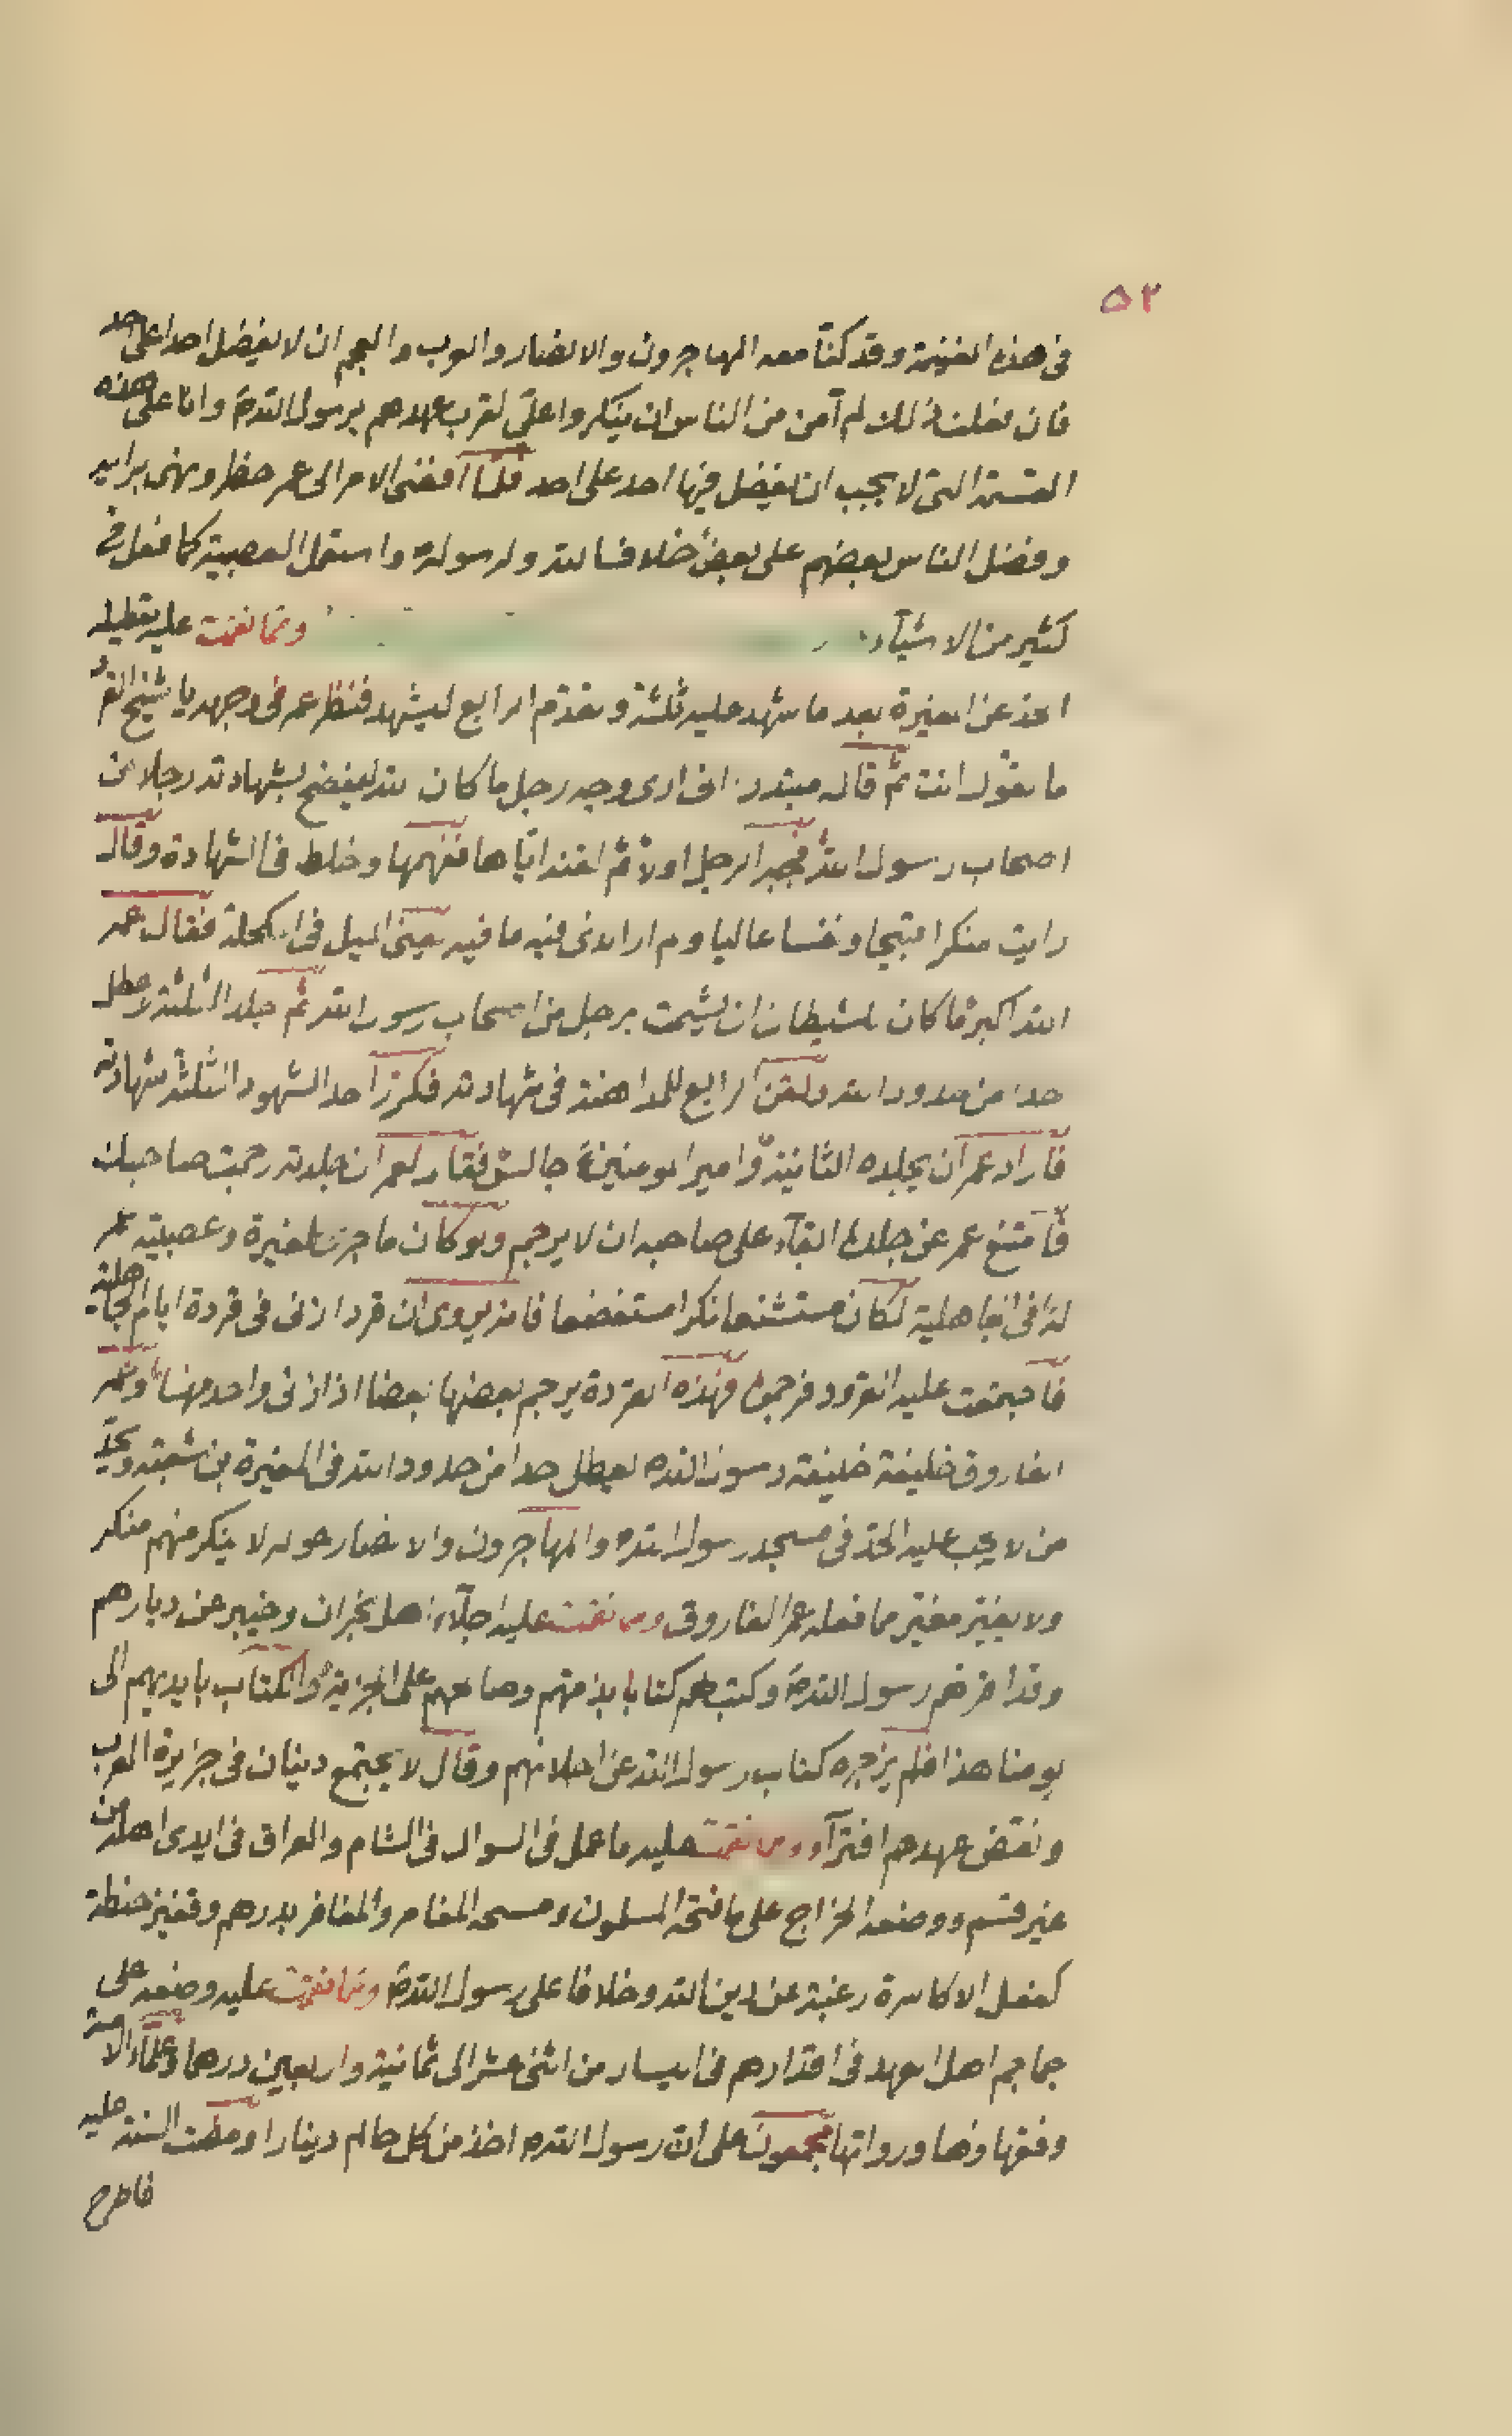 ٥٢
فى هذه الغنيمة وقد كنّا معه المهاجرون والانصار والعرب والعجم ان لا يفضل احدا على احد
فان فعلت ذلك لم آمن من الناس ان ينكروا علىّ لقرب عهدهم برسول الله ص وانا على هذه
القسمة التى لا يجب ان يفضل فيها احد على احد فلمّا افضى الامر الى عمر حظر ونهى برايه
وفضل الناس بعضهم على بعض خلافا لله ولرسوله واستعمل العصبية كما فعل فى
كثير من الاشيآء ومما نقمت عليه تعطيله
الحد عن المغيرة بعد ما شهد عليه ثلثة وتقدم الرابع ليشهد فنظر عمر فى وجهه يا شيخ
ما تقول انت ثم قال مبتدر انى ارى وجه رجل ما كان الله ليفضح بشهادته رجلا من
اصحاب رسول الله الرجل اولا ثم لقنه ايّاها ففهمها وخلط فى الشهادة وقال
رايت منكرا قبيحا ونفسا عاليا ولم ار الذى فيه ما فيه يعنى الميل فى المكحلة فقال عمر
الله اكبر ما كان الشيطان ان يشمت برجل من اصحاب رسول الله ثم جلد الثلثة وعطل
حدا من حدود الله ولقن الرابع للمداهنة فى شهادته فكرر احد الشهود الثلثة شهادته
فاراد عمر ان يجلده الثانية وامير المومنين ع جالس فقال لعمر ان جلدته رجمت صاحبك
فامتنع عمر عن جلده ابقآء على صاحبه ان لا يرجم ولو كان ما جرى المغيرة وعصبية عمر
له فى الجاهلية لكان مستشنعا نكرا مستفضعا فانه يروى ان قردا زنى فى قردة ايام الجاهلية
فاجتمعت عليه القرود فرجموه فهذه القردة يرجم بعضها بعضا اذا زنى واحد منها وعمر
الفاروق خليفة خليفة رسول الله ص يعطل حدا من حدود الله فى المغيرة بن شعبة ويحد
من لا يجب عليه الحد فى مسجد رسول الله ص والمهاجرون والانصار حوله لا ينكر منهم منكر
ولا يغيّر مغيّر مما فعله عمر الفاروق ومما نقمت عليه اجلآء اهل نجران وخيبر عن ديارهم
وقد اقرهم رسول الله ص وكتب لهم كتابا بذمتهم وصالحهم على الجزية والكتاب بايديهم الى
يومنا هذا فلم يزجره كتاب رسول الله عن اجلائهم وقال لا يجتمع دينان فى جزيرة العرب
ونقض عهدهم افترآء ومما نقمت عليه ما عمل فى السواد فى الشام والعراق فى ايدى اهله من
غير قسم ووضعه الخراج على ما فتحه المسلمون ومسحه العامر والغامر بدرهم وقفيز حنطة
كفعل الاكاسرة رغبة عن دين الله وخلافا على رسول الله ص ومما نقمت عليه وضعه على
جماجم اهل العهد فى اقدارهم فى اليسار من اثنى عشر الى ثمانية واربعين درهما وعلمآء الامة
وفقهاؤها ورواتها مجمعون على ان رسول الله ص اخذ من كل حالم دينارا ومضت السنة عليه
فاطرح